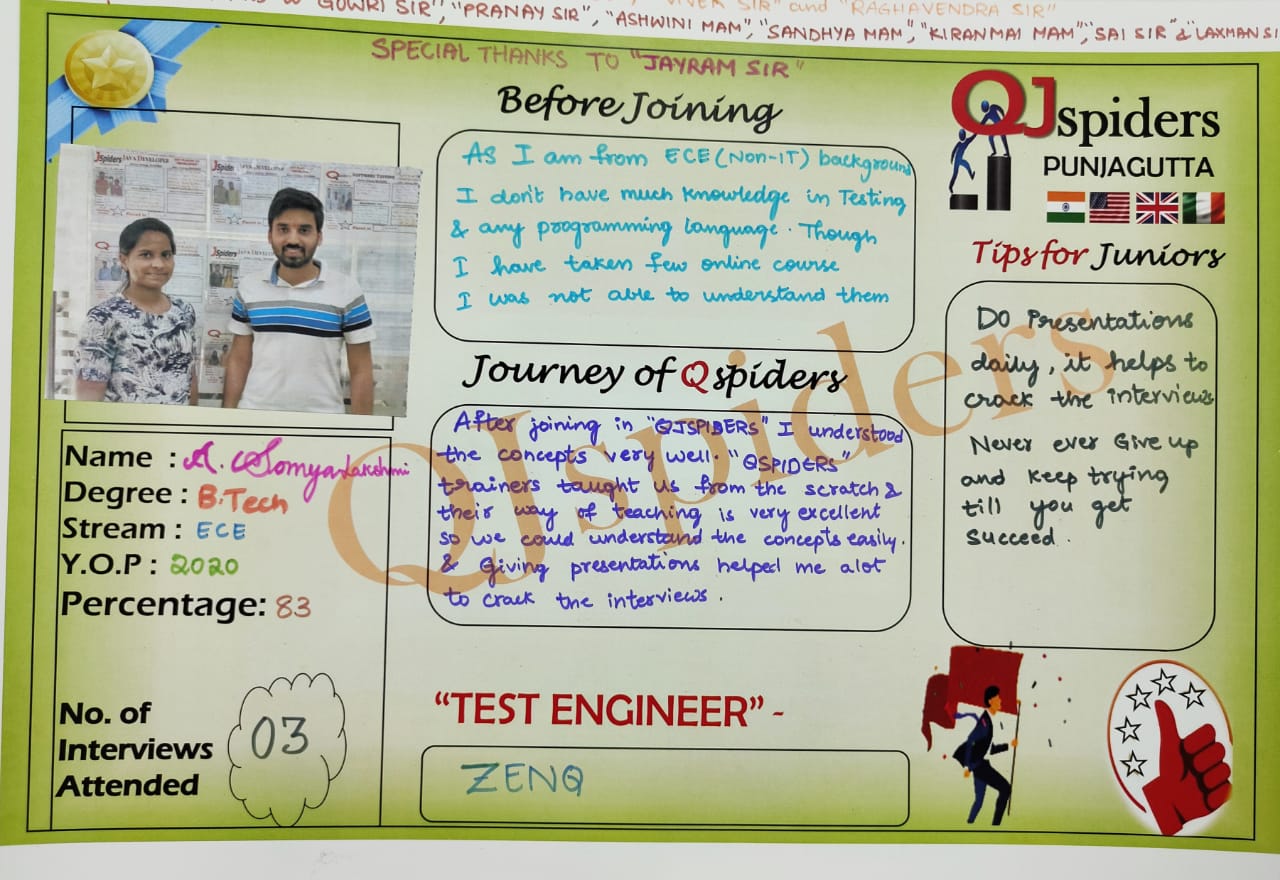 "GOWRI SIR", "PRANAY SIR", "ASHWINI MAM", "SANDHYA MAM", "KIRANMAI MAM", "SAI SIR" & "LAXMAN SI
and "RAGHAVENDRA SIR"
SPECIAL THANKS TO "JAYRAM SIR"
Before Joining
As I am from ECE (Non-IT) background
I don't have much knowledge in Testing
& any programming language. Though
I have taken few online course
I was not able to understand them
Journey of Qspiders
After joining in "QJSPIDERS" I understood
the concepts very well. "QSPIDERS"
trainers taught us from the scratch &
their way of teaching is very excellent
so we could understand the concepts easily.
& Giving presentations helped me alot
to crack the interviews.
"TEST ENGINEER" -
ZENQ
Name : A. Somya Lakshmi
Degree : B.Tech
Stream : ECE
Y.O.P : 2020
Percentage: 83
No. of
Interviews
Attended
03
QJspiders
PUNJAGUTTA
Tips for Juniors
Do Presentations
daily, it helps to
crack the interviews
Never ever Give up
and keep trying
till you get
succeed.
QJspiders